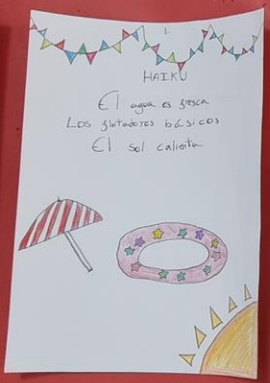 1.
HAIKU
El agua es fresca
Los flotadores básicos
El sol calienta